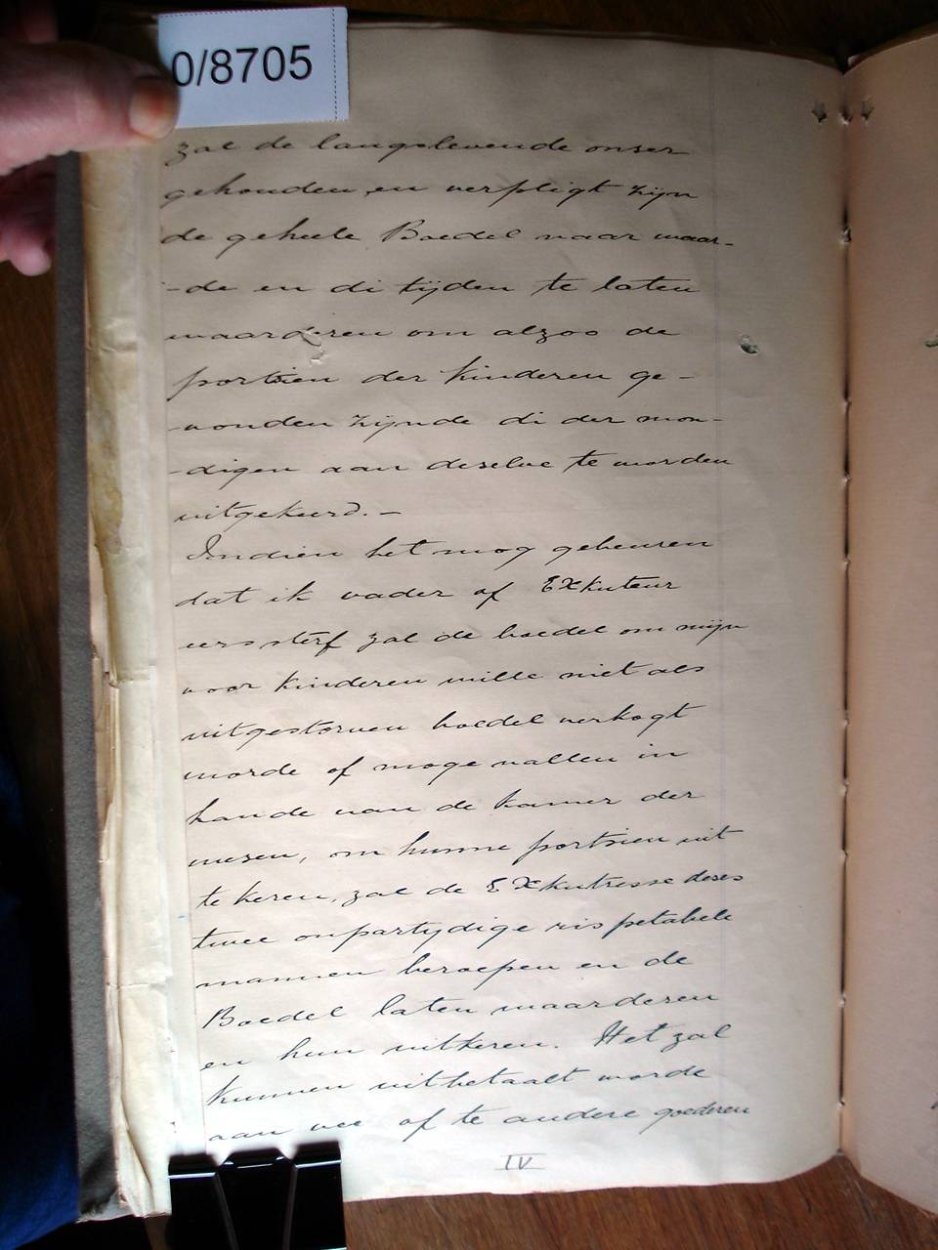 0/8705
zal de langslevende onser
gehouden en verpligt zijn
de geheele Boedel naar waar-
-de en di tijden te laten
waarderen om alzoo de
portsien der kinderen ge-
-vonden zijnde di der mon-
-digen aan deselve te worden
uitgekeerd. —
Indien het mog gebeuren
dat ik vader of EXkuteur
eerssterf zal de boedel om mijn
voor kinderen wille niet als
uitgestorven boedel verkogt
worde of moge vallen in
hande van de kamer der
wesen, om hunne portsien uit
te keren, zal de EXkutresse deses
twee onpartydige rispetabele
mannen beroepen en de
Boedel laten waarderen
en hun uitkeren. Het zal
kunnen uitbetaalt worde
aan vee of te andere goederen
IV